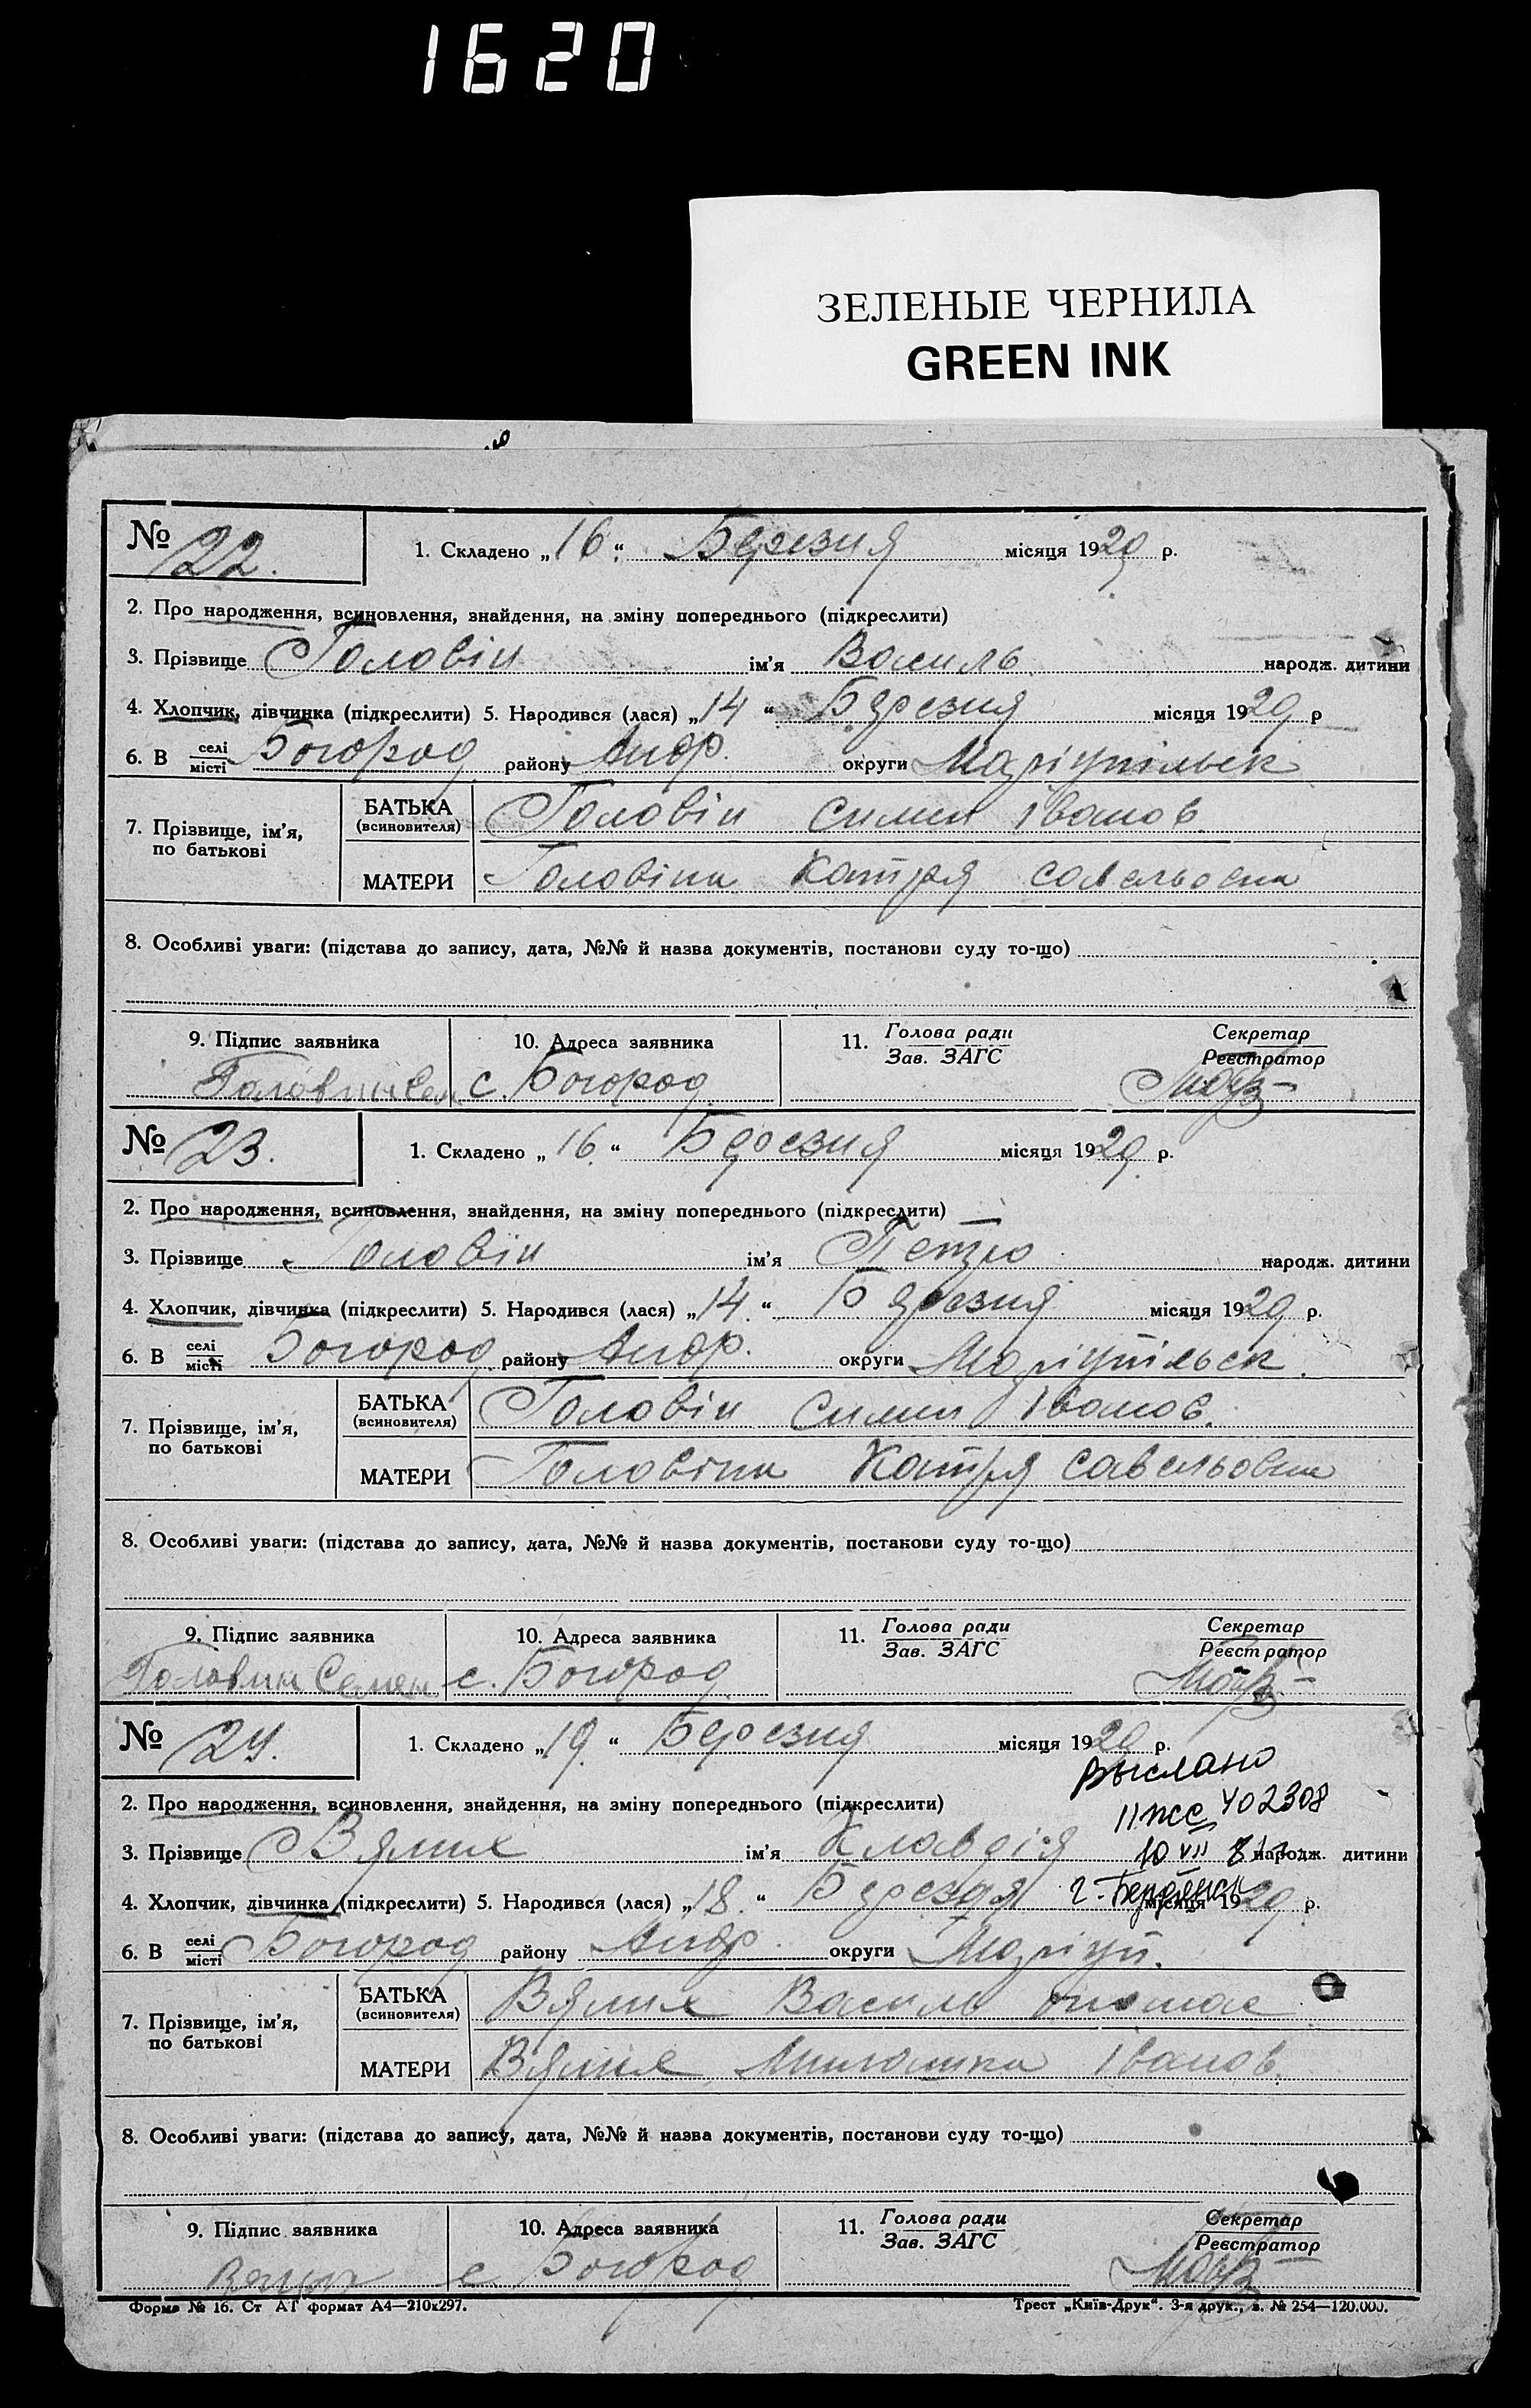 1620
ЗЕЛЕНЫЕ ЧЕРНИЛА
GREEN INK
№ 22.
1. Складено „16“ Березня місяця 1929 р.
2. Про народження, всиновлення, знайдення, на зміну попереднього (підкреслити)
3. Прізвище Головін ім'я Василь народж. дитини
4. Хлопчик, дівчинка (підкреслити) 5. Народився (лася) „14“ Березня місяця 1929 р
6. В селі місті Богород району Андр. округи Маріупільск
7. Прізвище, ім'я, по батькові
БАТЬКА (всиновителя) Головін Симен Іванов.
МАТЕРИ Головіна Катря Савельовна
8. Особливі уваги: (підстава до запису, дата, №№ й назва документів, постанови суду то-що)
9. Підпис заявника 10. Адреса заявника 11. Голова ради Зав. ЗАГС Секретар Реєстратор
Головин Сем с. Богород
№ 23.
1. Складено „16.“ Березня місяця 1929 р.
2. Про народження, всиновлення, знайдення, на зміну попереднього (підкреслити)
3. Прізвище Головін ім'я Петро народж. дитини
4. Хлопчик, дівчинка (підкреслити) 5. Народився (лася) „14.“ Березня місяця 1929 р.
6. В селі місті Богород району Андр. округи Маріупільск.
7. Прізвище, ім'я, по батькові
БАТЬКА (всиновителя) Головін Симен Іванов.
МАТЕРИ Головіна Катря Савельовна
8. Особливі уваги: (підстава до запису, дата, №№ й назва документів, постанови суду то-що)
9. Підпис заявника 10. Адреса заявника 11. Голова ради Зав. ЗАГС Секретар Реєстратор
Головин Семен с. Богород
№ 24.
1. Складено „19.“ Березня місяця 1929 р.
Выслано
2. Про народження, всиновлення, знайдення, на зміну попереднього (підкреслити)
402308
3. Прізвище ім'я Клавдія 10 VII народж. дитини
4. Хлопчик, дівчинка (підкреслити) 5. Народився (лася) „18.“ Березня г. Бердянск місяця 1929 р.
6. В селі місті Богород району Андр округи Маріуп.
7. Прізвище, ім'я, по батькові
БАТЬКА (всиновителя) Василь
МАТЕРИ Іванов.
8. Особливі уваги: (підстава до запису, дата, №№ й назва документів, постанови суду то-що)
9. Підпис заявника 10. Адреса заявника 11. Голова ради Зав. ЗАГС Секретар Реєстратор
с. Богород
Форма № 16. Ст АТ формат А4—210x297. Трест „Київ-Друк“. 3-я друк., з. № 254—120.000.